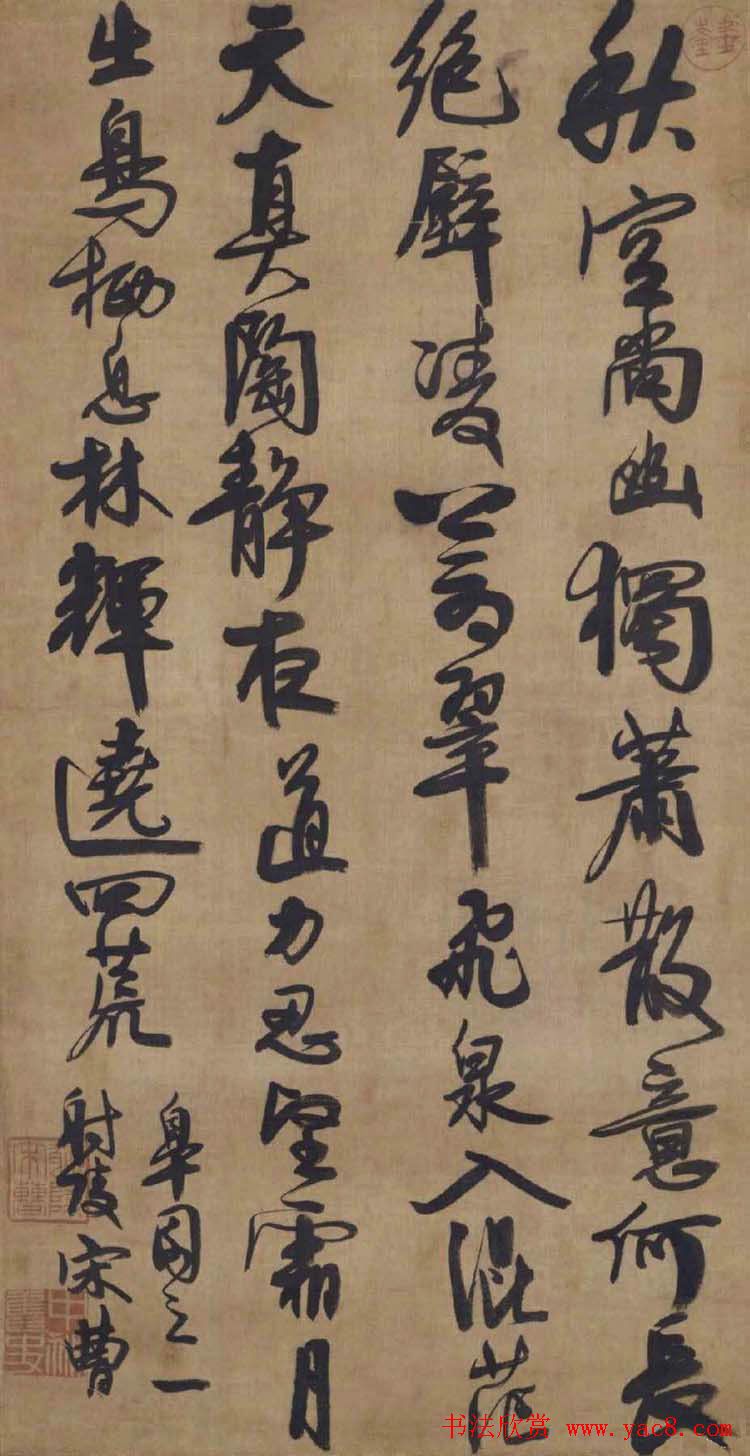 秋空尚幽獨蕭散意何長
絕壁凌蒼翠飛泉入混茫
天真陶靜夜道力忍望霜月
出鳥栖息林輝遶四荒
皋園之一
射陵宋曹
书法欣赏 www.yac8.com